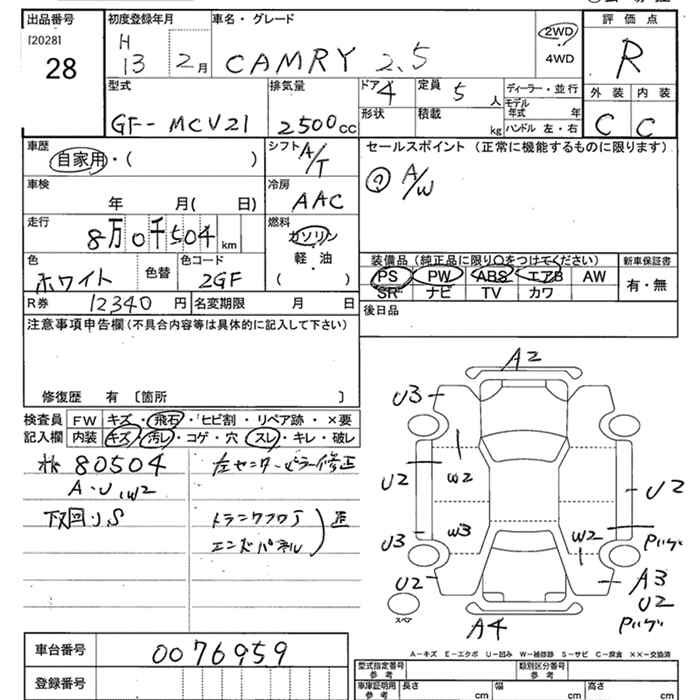 出品番号
[2028]
28
初度登録年月
H
13 2月
車名・グレード
CAMRY 2.5
2WD
4WD
評価点
R
型式
GF-MCV21
排気量
2500cc
ドア 4
定員 5 人
形状
積載 kg
ディーラー・並行
モデル
年式 年
ハンドル 左・右
外装 内装
C C
車歴
自家用・( )
シフト A/T
セールスポイント (正常に機能するものに限ります)
① A/W
車検
年 月( 日)
冷房
AAC
走行
8万0千504km
燃料
ガソリン
軽・油
( )
色
ホワイト
色替
色コード
2GF
装備品(純正品に限り○をつけてください)
新車保証書
PS PW ABS エアB AW
SR ナビ TV カワ
有・無
R券 12340円
名変期限 月 日
後日品
注意事項申告欄(不具合内容等は具体的に記入して下さい)
修復歴 有 〔箇所 〕
検査員
記入欄
FW キズ・飛石・ヒビ割・リペア跡・×要
内装 キズ・汚レ・コゲ・穴・スレ・キレ・破レ
80504
左センターピラー修正
A・U,W2
下回りS
トランクフロア
エンドパネル
A2
U3
U2
W2
U2
U3
W3
W2
U2
A3
U2
A4
スペア
A-キズ E-エクボ U-凹み W-補修跡 S-サビ C-腐食 ××-交換済
車台番号
0076959
登録番号
型式指定番号
参考
類別区分番号
参考
車庫証明用
参考
長さ cm
幅 cm
高さ cm